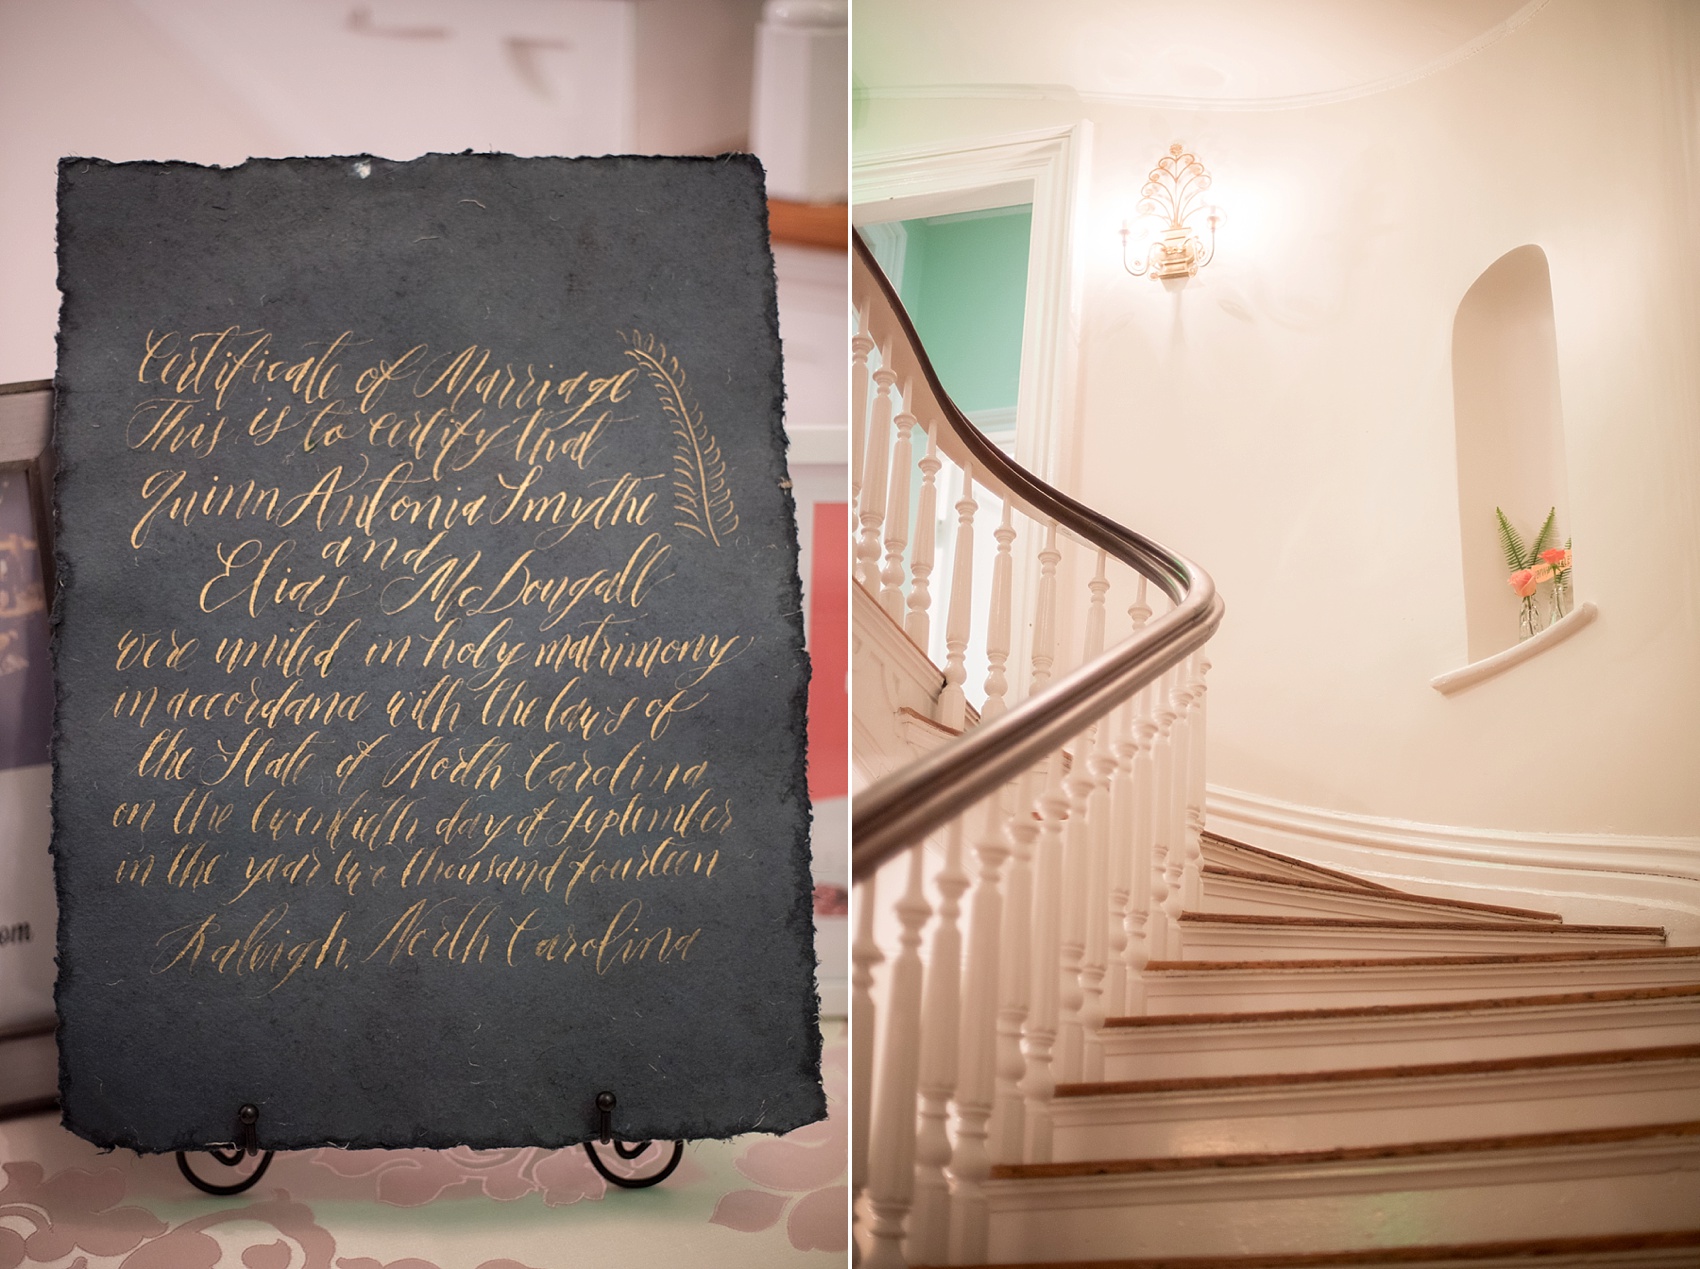 Certificate of Marriage
This is to certify that
Quinn Antonia Smythe
and
Elias McDougall
were united in holy matrimony
in accordance with the laws of
the State of North Carolina
on the twentieth day of September
in the year two thousand fourteen
Raleigh, North Carolina
om